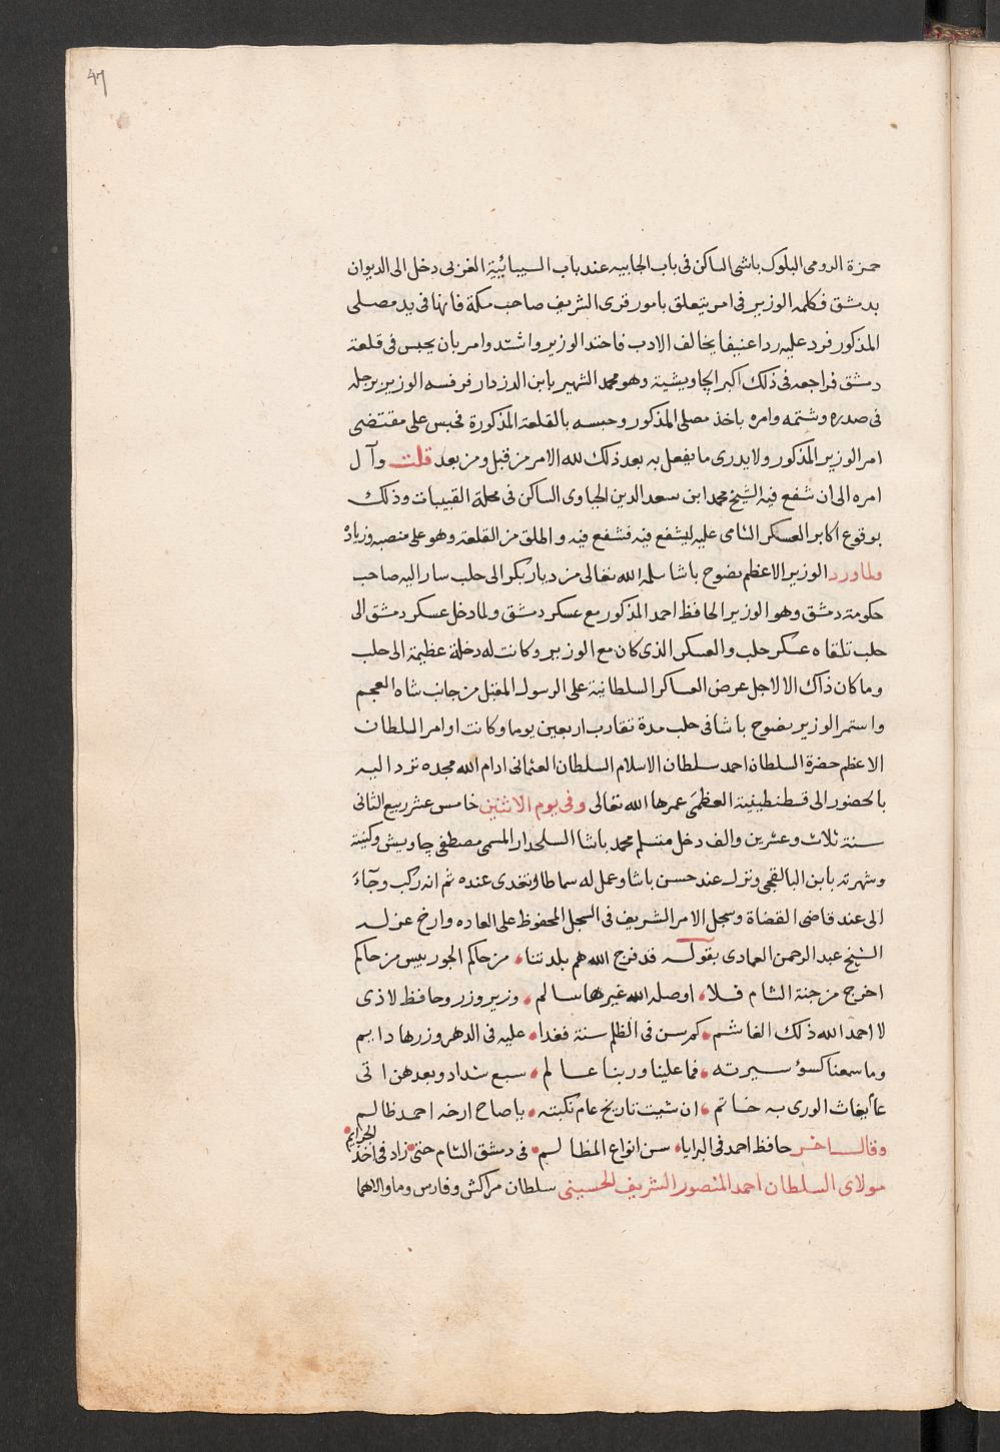 47
حمزة الرومى البلوك باشى الساكن فى باب الجابيه عند باب السيبائية الغربى دخل الى الديوان
بدمشق فكلمه الوزير فى امر يتعلق بامور قرى الشريف صاحب مكة فانها فى يد مصلى
المذكور فرد عليه ردا عنيفا يخالف الادب فاحتد الوزير واشتد وامر بان يحبس فى قلعة
دمشق فراجعه فى ذلك اكبر الچاويشية وهو محمد الشهير بابن الدزدار فرفسه الوزير برجله
فى صدره وشتمه وامره باخذ مصلى المذكور وحبسه بالقلعة المذكورة فحبس على مقتضى
امر الوزير المذكور ولا يدرى ما يفعل به بعد ذلك لله الامر من قبل ومن بعد قلت وآل
امره الى ان شفع فيه الشيخ محمد ابن سعد الدين الجباوى الساكن فى محلة القبيبات وذلك
بوقوع اكابر العسكر الشامى عليه ليشفع فيه فشفع فيه واطلق من القلعة وهو على منصبه وزيادة
ولما ورد الوزير الاعظم نصوح باشا سلمه الله تعالى من ديار بكر الى حلب سار اليه صاحب
حكومة دمشق وهو الوزير الحافظ احمد المذكور مع عسكر دمشق ولما دخل عسكر دمشق الى
حلب تلقاه عسكر حلب والعسكر الذى كان مع الوزير وكانت له دخلة عظيمة الى حلب
وما كان ذاك الا لاجل عرض العساكر السلطانية على الرسول المقبل من جانب شاه العجم
واستمر الوزير نصوح باشا فى حلب مدة تقارب اربعين يوما وكانت اوامر السلطان
الاعظم حضرة السلطان احمد سلطان الاسلام السلطان العثمانى ادام الله مجده ترد اليه
بالحضور الى قسطنطينية العظمى عمرها الله تعالى وفى يوم الاثنين خامس عشر ربيع الثانى
سنة ثلاث وعشرين والف دخل متسلم محمد باشا السلحدار المسمى مصطفى چاويش وكنيته
وشهرته بابن البالقجى ونزل عند حسن باشا وعمل له سماطا وتغدى عنده ثم انه ركب وجآء
الى عند قاضى القضاة وسجل الامر الشريف فى السجل المحفوظ على العاده وارخ عزله
الشيخ عبد الرحمن العمادى بقوله قد فرج الله هم بلدتنا • من حاكم الجور بيس من حاكم
اخرج من جنة الشام فلا • اوصله الله غيرها سالم • وزير وزر وحافظ لاذى
لا احمد الله ذلك الغاشم • كم سن فى الظلم سنة فغدا • عليه فى الدهر وزرها دايم
وما سمعنا كسوٴ سيرته • فما علينا وربنا عالم • سبع شداد وبعدهن اتى
عام يغاث الورى به خاتم • ان شيت تاريخ عام نكبته • ياصاح ارخه احمد ظالم
وقال اخر حافظ احمد فى البرايا • سن انواع المظالم • فى دمشق الشام حتى • زاد فى اخذ الجرايم •
مولاى السلطان احمد المنصور الشريف الحسينى سلطان مراكش وفارس وما والاهما